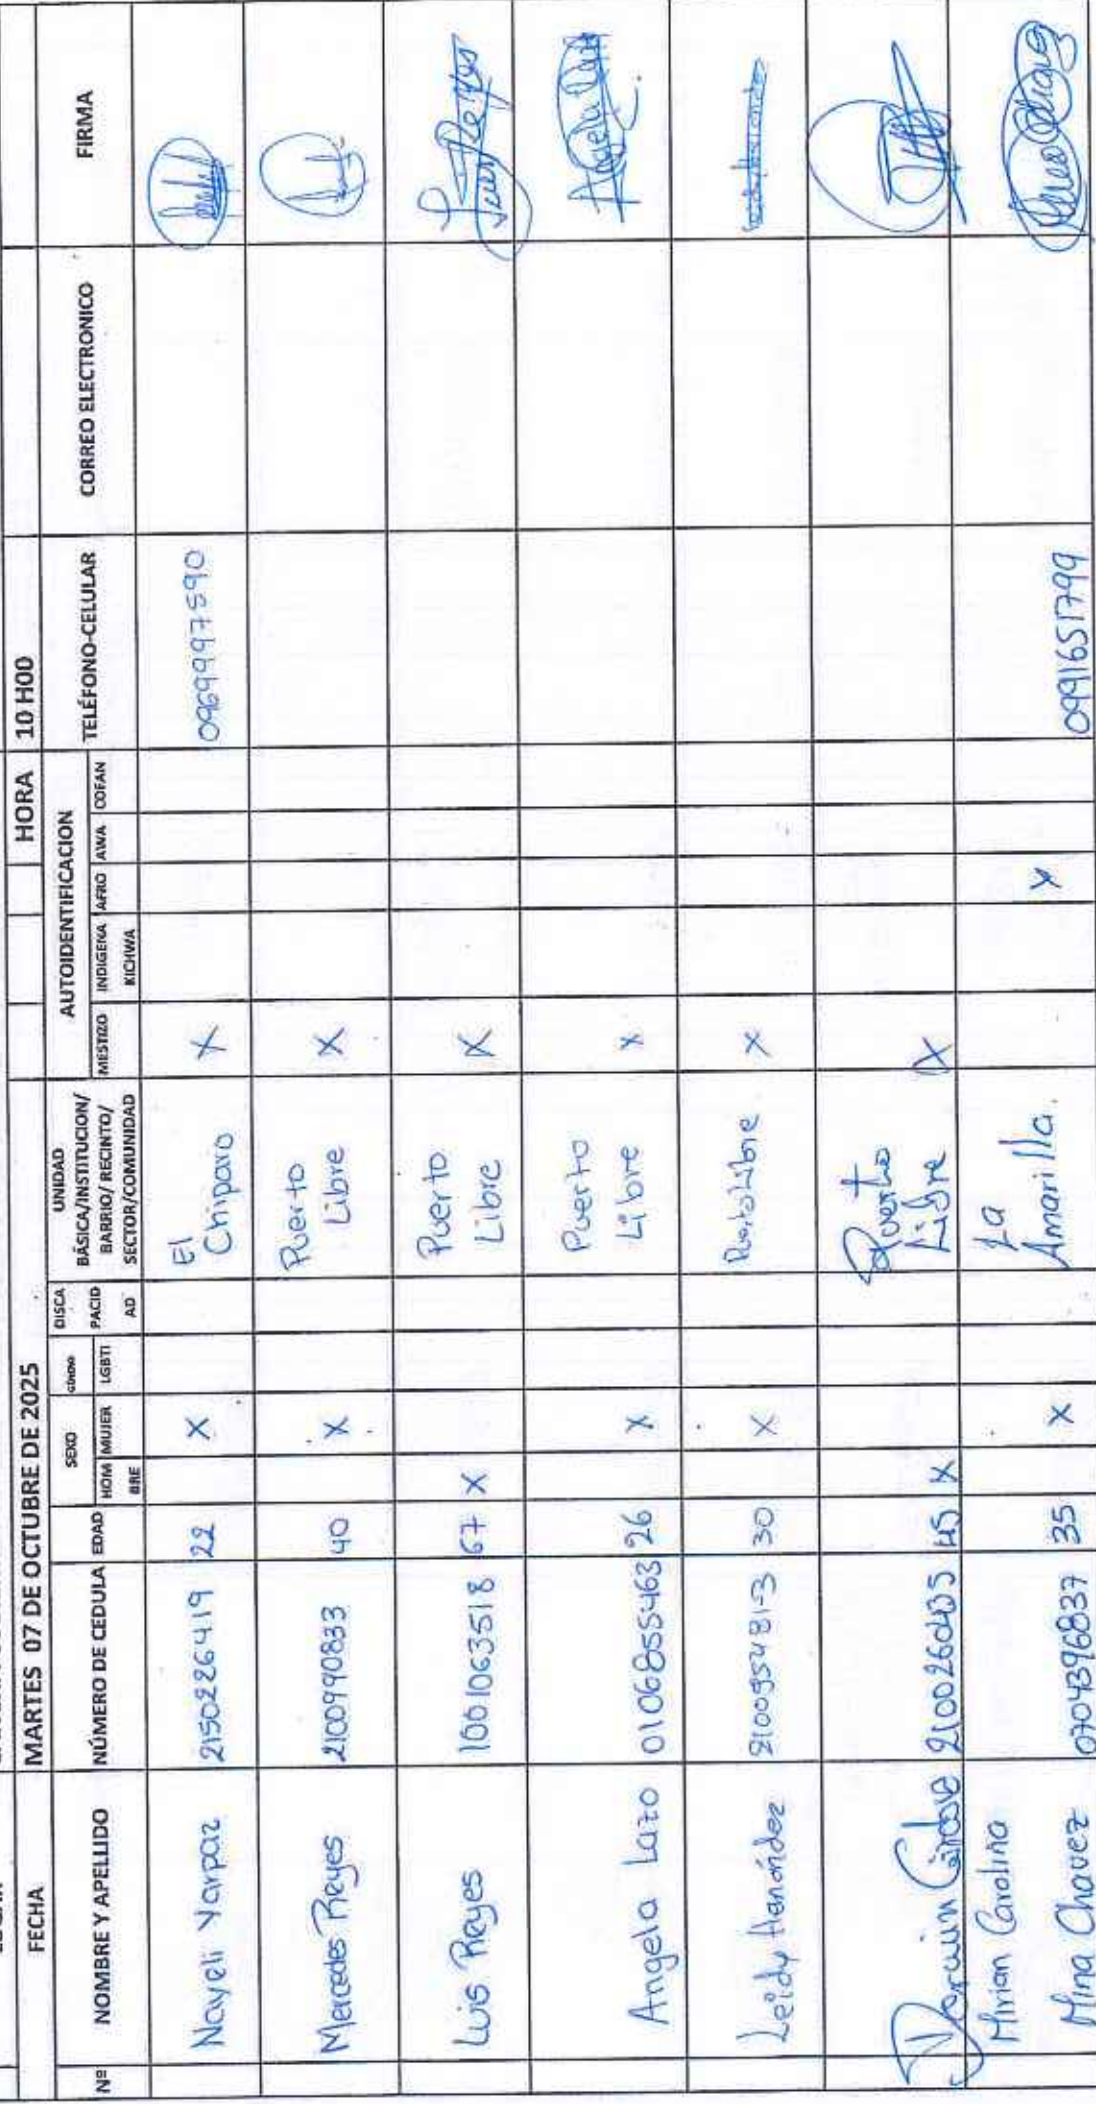 FECHA MARTES 07 DE OCTUBRE DE 2025 HORA 10 H00
Nº NOMBRE Y APELLIDO NÚMERO DE CEDULA EDAD SEXO HOMBRE MUJER LGBTI DISCAPACIDAD UNIDAD BÁSICA/INSTITUCION/ BARRIO/ RECINTO/ SECTOR/COMUNIDAD AUTOIDENTIFICACION MESTIZO INDIGENA KICHWA AFRO AWA COFAN TELÉFONO-CELULAR CORREO ELECTRONICO FIRMA
Nayeli Yarpaz 2150226419 22 X El Chiparo X 0969997590
Mercedes Reyes 2100990833 40 X Puerto Libre X
Luis Reyes 1001063518 67 X Puerto Libre X
Angela Lazo 0106855463 26 X Puerto Libre X
Leidy 210095481-3 30 X Puerto Libre X
Darwin 45 X Puerto Libre X
Mirian Carolina
Mina Chavez 0704396837 35 X La Amarilla. X 0991651799